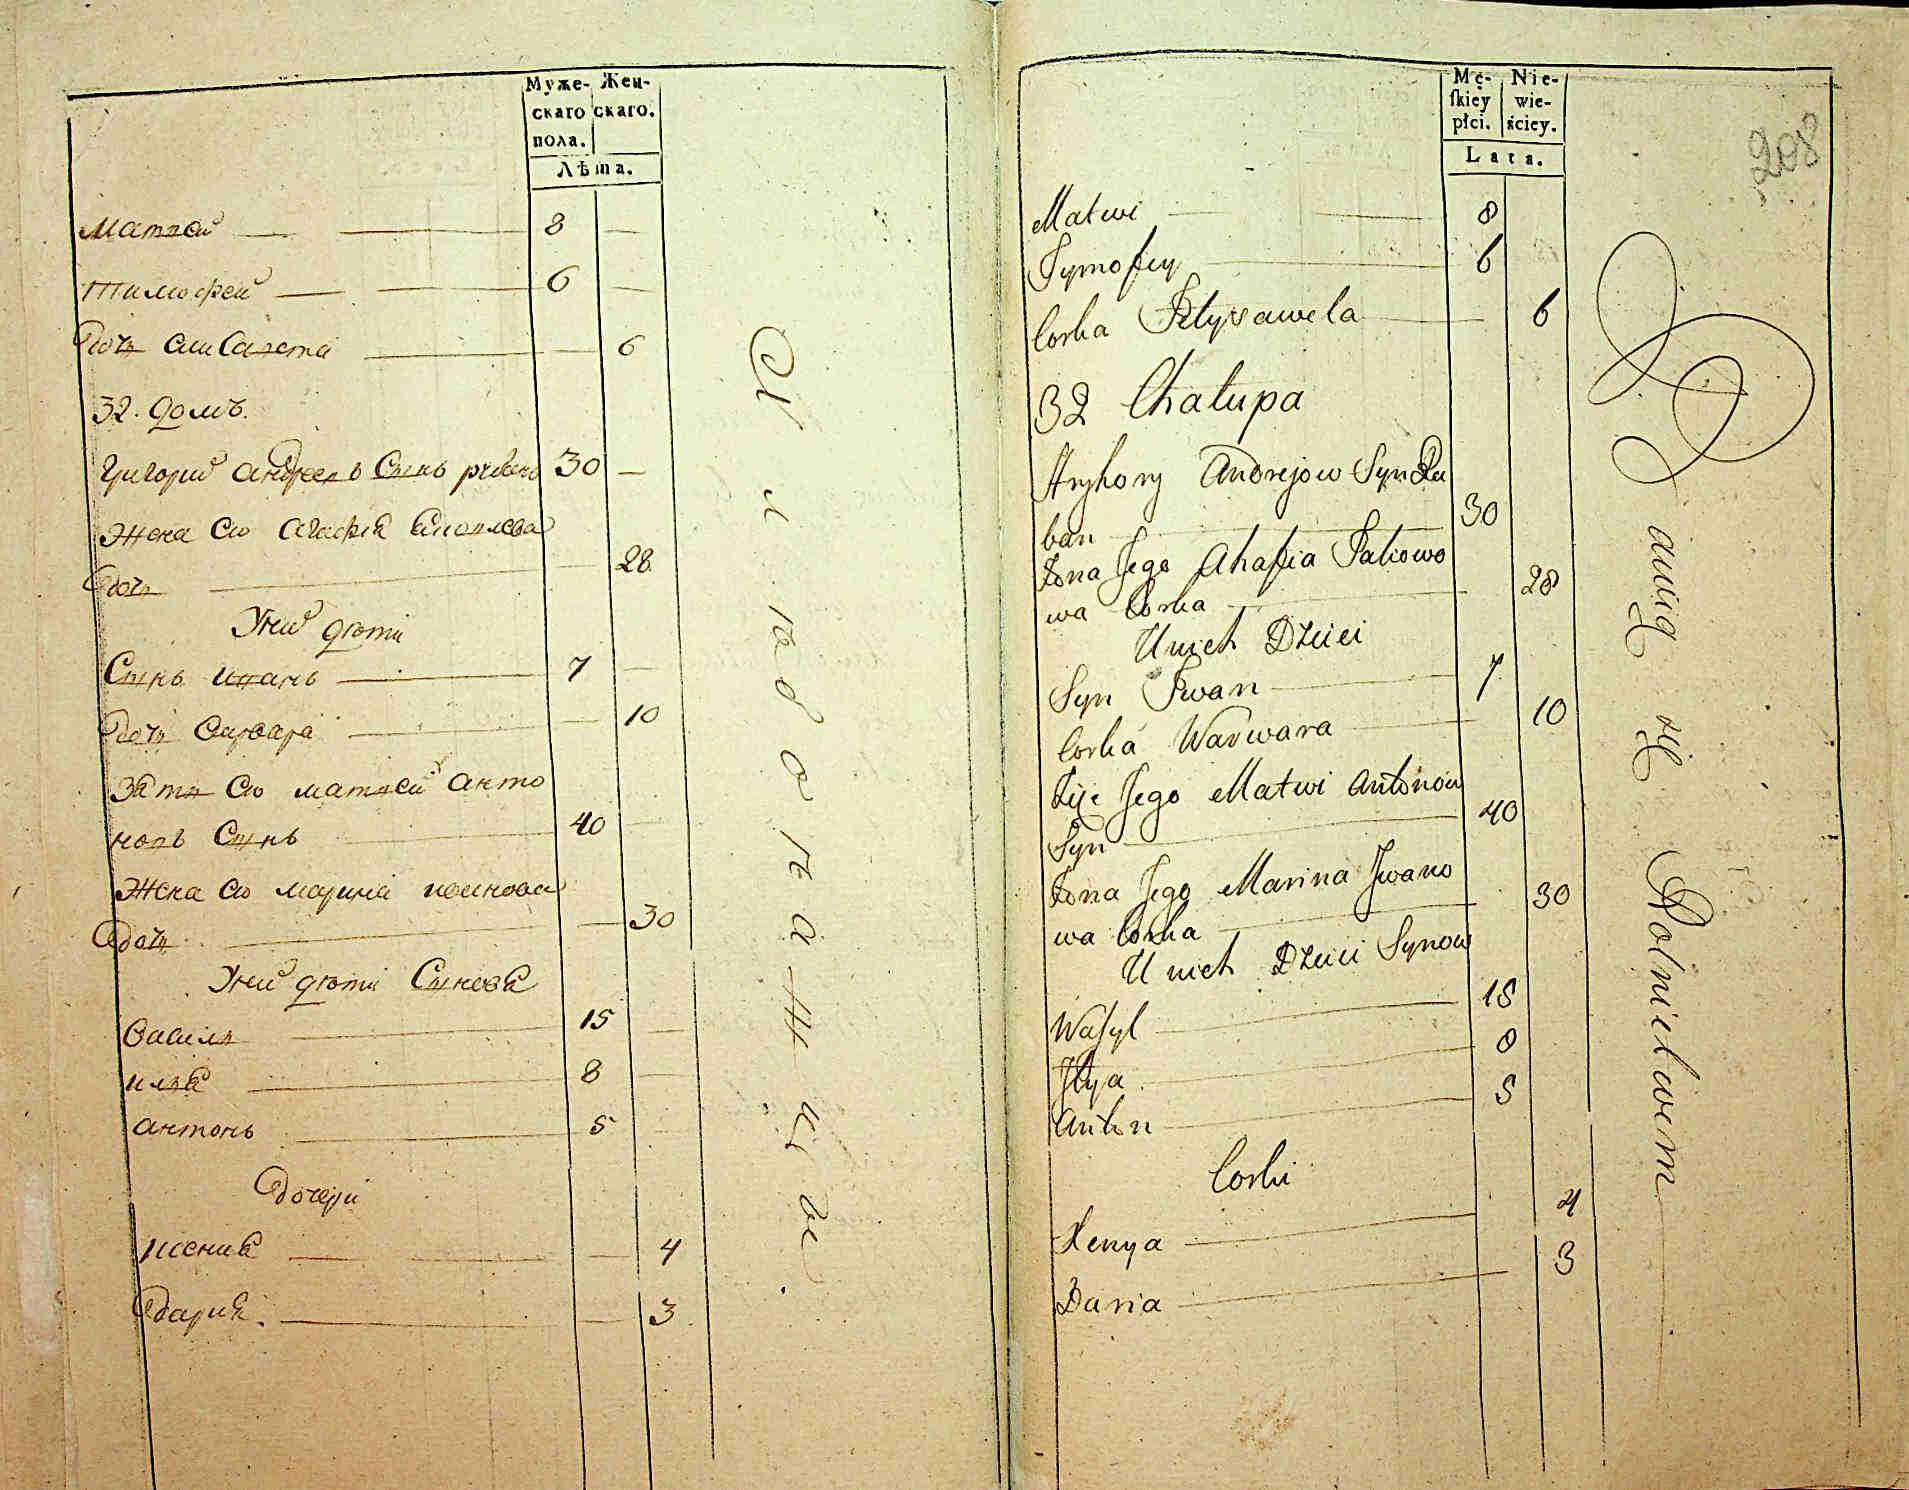 Муже- Жен-
скаго скаго.
пола.
Лѣта.
Матвей 8 —
Тимофей 6 —
Дочь елисавета — 6
32. домъ.
Григорий андреевъ Сынъ рубанъ 30 —
Жена его агафия яковлева
Дочь — 28
У нихъ дѣти
Сынъ иванъ 7 —
Дочь варвара — 10
Зять его матвей анто
новъ Сынъ 40 —
Жена его марина иванова
Дочь — 30
У нихъ дѣти Сынова
Василь 15 —
илья 8 —
антонъ 5 —
Дочери
ксения — 4
Дария. — 3
Męskiey płci. Niewieściey.
Lata.
208
Matwi 8
Tymofiey 6
Corka Jelysawela 6
32 Chalupa
Hryhory Andrejow Syn Ru
ban 30
Żona Jego Ahafia Jakowo
wa Corka 28
U nich Dzieci
Syn Jwan 7
Corka Warwara 10
Zięc Jego Matwi Antonow
Syn 40
Żona Jego Marina Jwano
wa Corka 30
U nich Dzieci Synow
Wasyl 15
Jlya 8
Anton 5
Corki
Xenya 4
Daria 3
Bawią się Rolnictwem